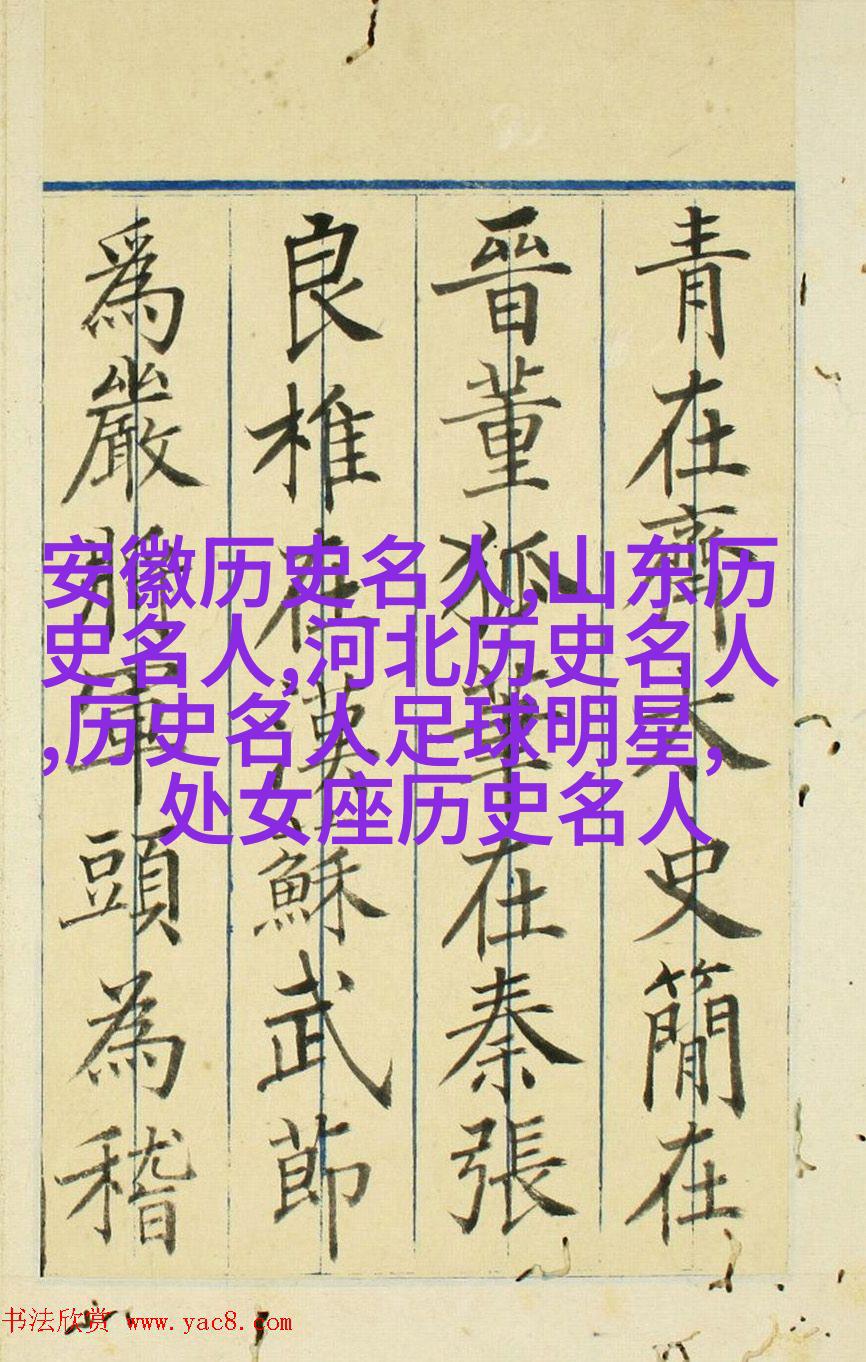 青在齊太史簡在
晉董狐筆在秦張
良椎在漢蘇武節
爲嚴將軍頭為稽
安徽历史名人,山东历
史名人,河北历史名人
,历史名人足球明星,
处女座历史名人
书法欣赏 www.yac8.com